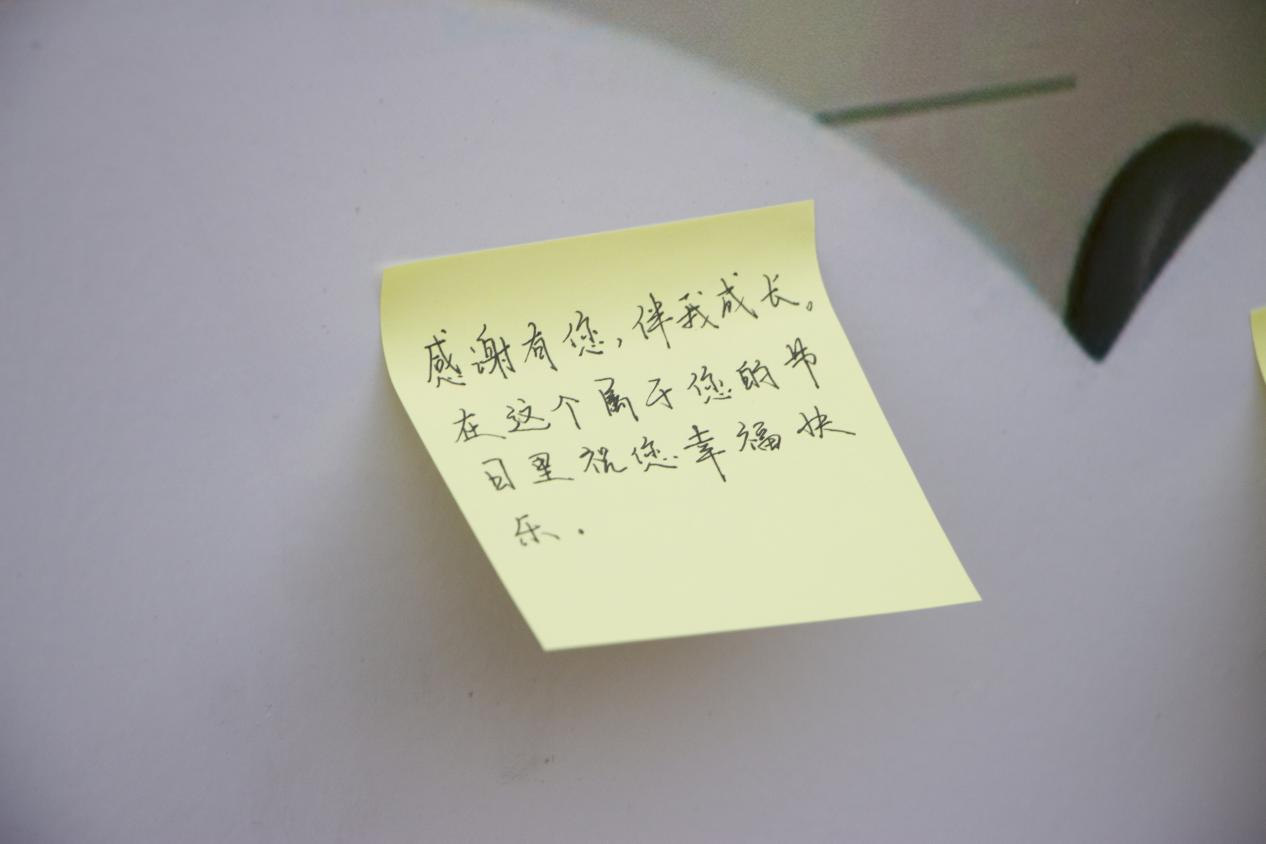 感谢有您,伴我成长。
在这个属于您的节
日里祝您幸福快
乐.